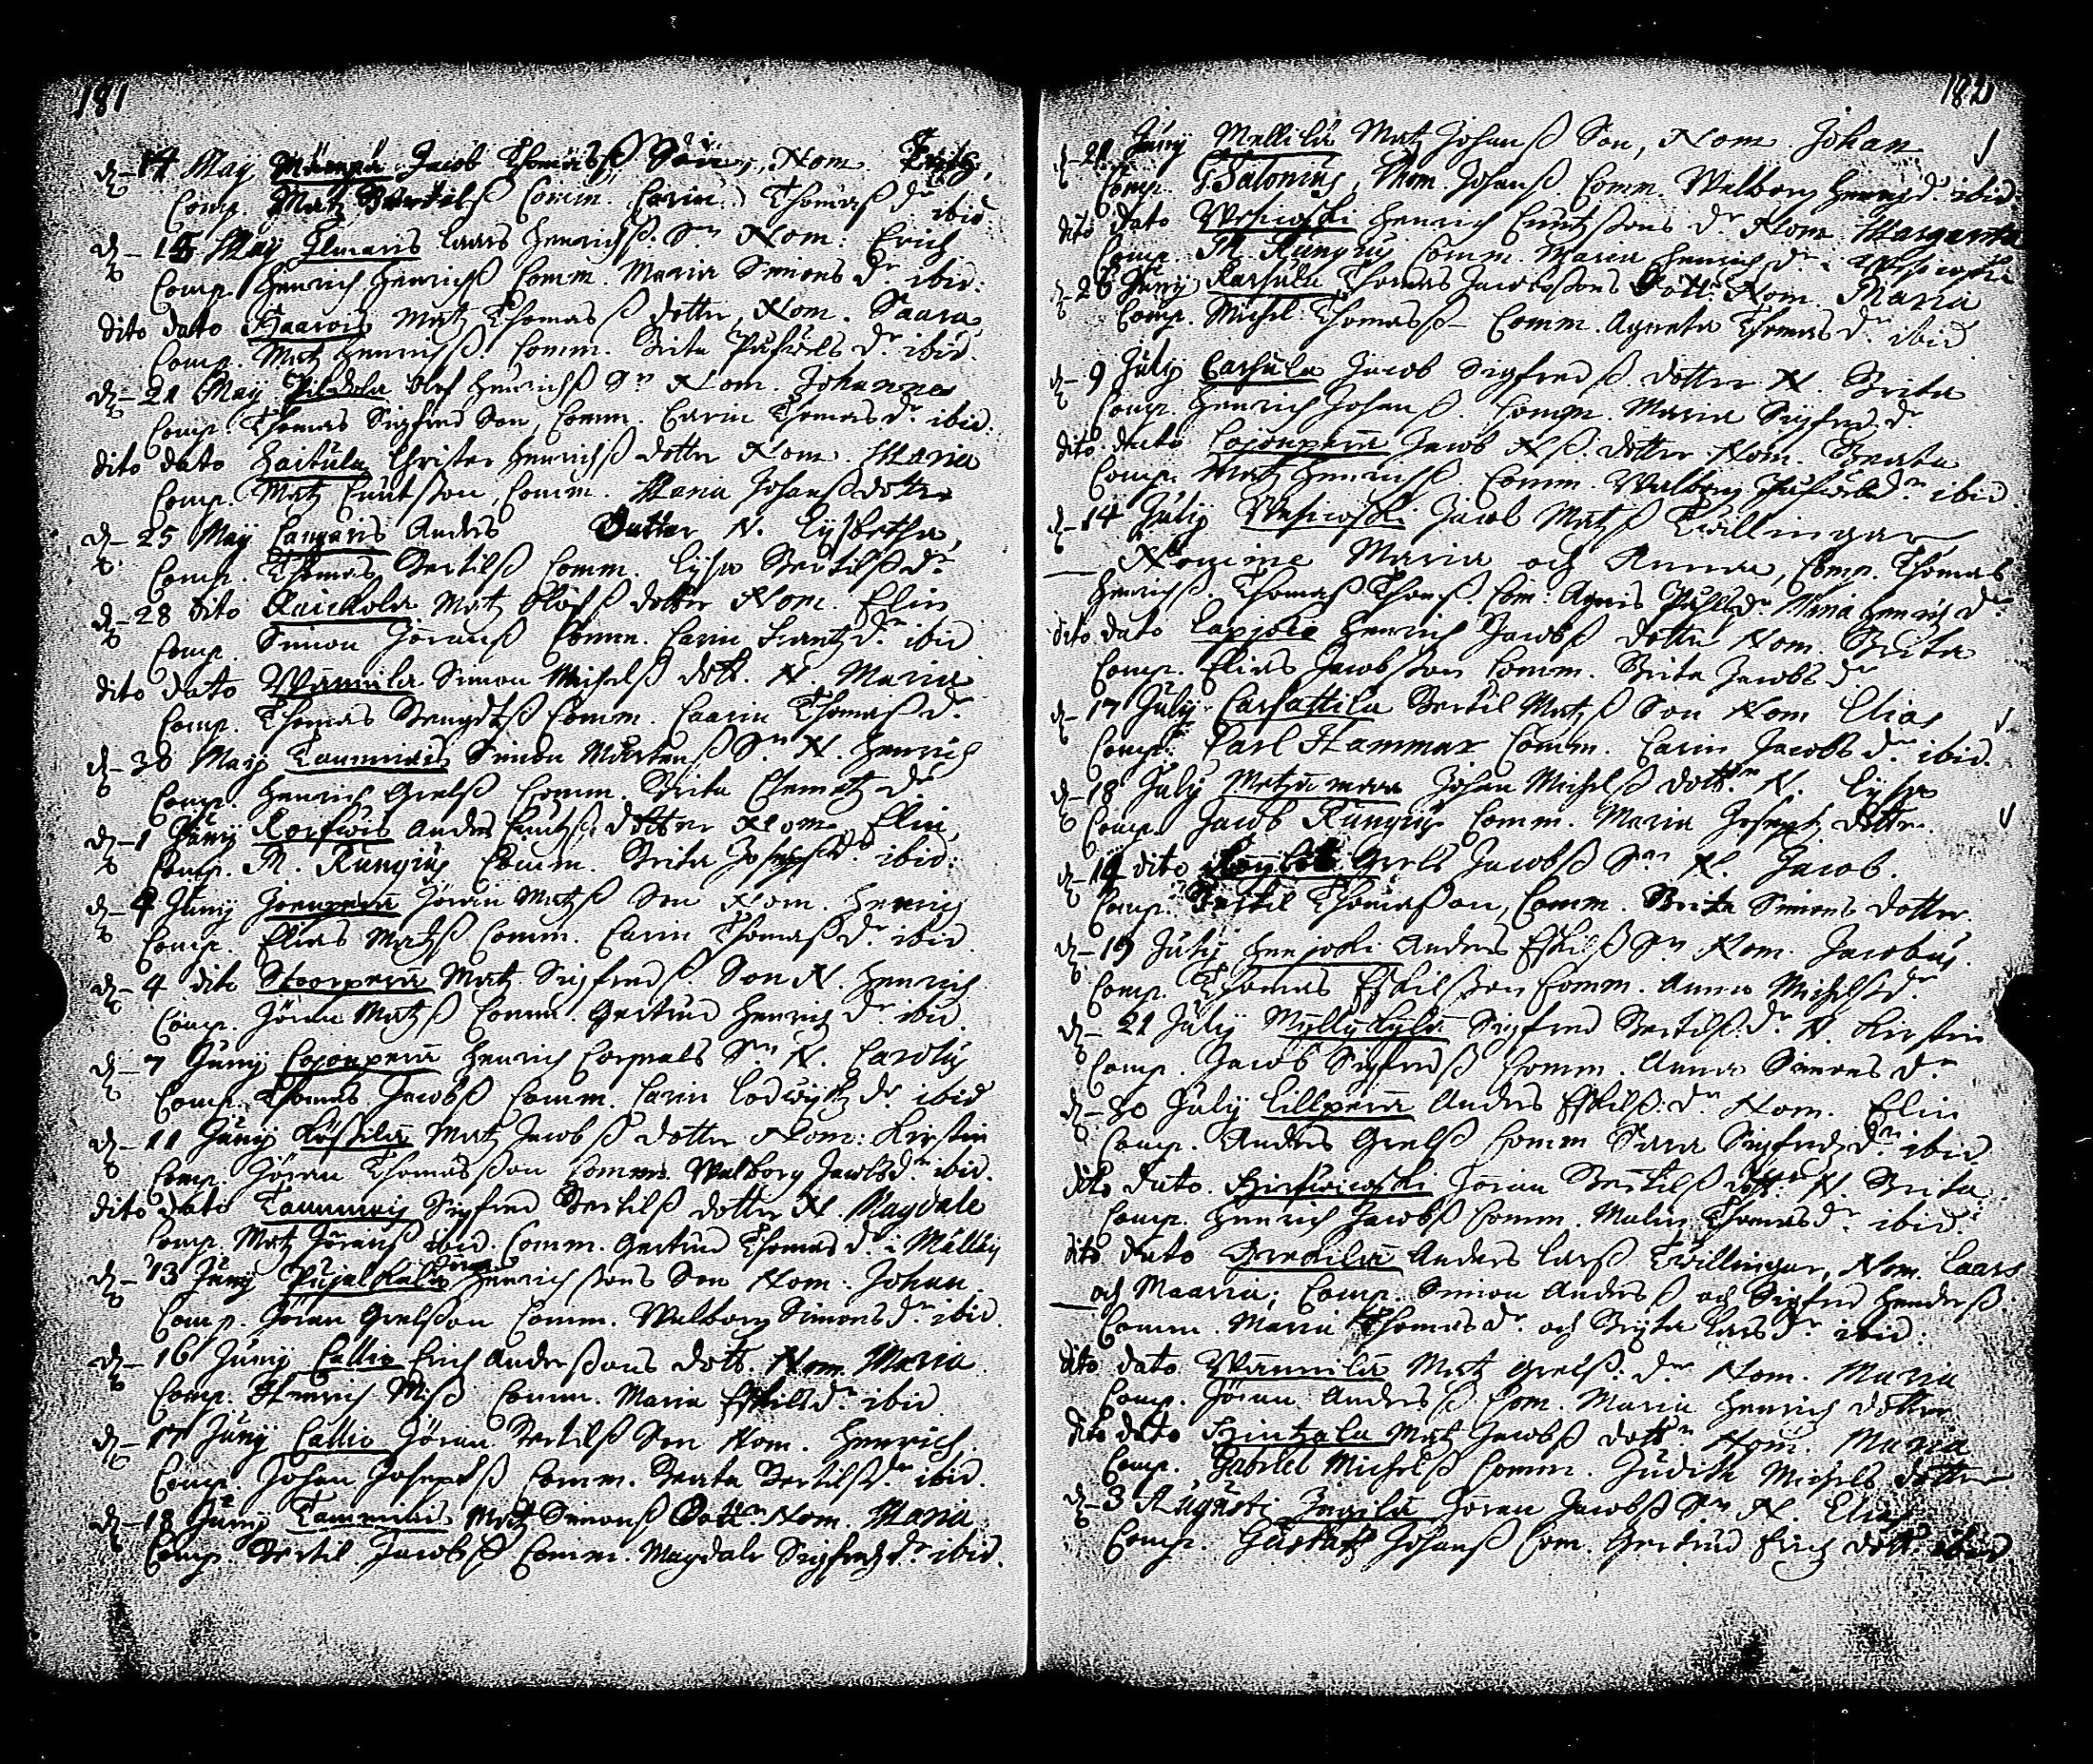 181
d. 14 May Mämpä Jacob Thomasß Son, Nom.
Comp. Matz Bertilß Comm. Carin Thomaß dr ibid.
d. 15 May Ilmaris Laars Henrichß. Sn Nom: Erich
Comp. Henrich Henrichß Comm. Maria Simons dr ibid:
dito dato Haarois Matz Thomasß dotter, Nom. Saara,
Comp. Matz Henrichß. Comm. Brita Påhvels dr ibid.
d. 21 May Pildola Olof Henrichß Sn Nom. Johannes
Comp. Thomas Sigfred Son, Comm. Carin Thomas dr ibid:
dito dato Haitula Christer Henrichß dotter Nom. Maria
Comp. Matz Cnutßon, Comm. Maria Johanß dotter
d. 25 May Anders Dotter N. Lysbetha,
Comp. Thomas Bertilß Comm. Lysa Bertilß dr
d. 28 dito Matz Olofß dotter Nom. Elin
Comp. Simon Jöranß Comm. Carin Frantz dr ibid
dito dato Wämmilä Simon Michelß dott. N. Maria
Comp. Thomas Bengdtß Comm. Caarin Thomaß dr
d. 30 May Tammiais Simon Mårtenß Sn N. Henrich
Comp. Henrich Grelß Comm. Brita Clemetz dr
d. 1 Juny Korfwois Anders Cnutß. dotter Nom. Elin,
Comp. M. Rungius Comm. Brita Josephß dr ibid:
d. 4 Juny Joenperä Jöran Matzß Son Nom. Henrich
Comp. Elias Matzß Comm. Carin Thomaß dr ibid
d. 4 dito Stoorperä Matz Sigfredß. Son N. Henrich
Comp. Jöran Matzß Comm. Gertrud Henrich dr ibid.
d. 7 Juny Cojonperä Henrich Corporals Sn N. Carolus
Comp. Thomas Jacobß Comm. Carin Lodwichz dr ibid
d. 11 Juny Kößilä Matz Jacobß dotter Nom: Kirstin
Comp. Jöran Thomasßon Comm. Walborg Jacobs dr ibid.
dito dato Tammiais Sigfred Bertilß dotter N. Magdale
Comp. Matz Jöranß ibid. Comm. Gertrud Thomas dr i Mälläis
d. 13 Juny Pujalkala Jöran Henrichßons Son Nom: Johan
Comp. Jöran Grelsßon Comm. Walborg Simons dr ibid.
d. 16 Juny Callio Erich Anderßons dott. Nom. Maria
Comp. Henrich Nilß Comm. Maria Eskils dr ibid
d. 17 Juny Callio Jöran Bertilß Son Nom. Henrich.
Comp. Johan Josephß Comm. Beata Bertilß dr ibid.
d. 18 Juny Tammiais Matz Simonß Dottr Nom. Maria
Comp. Bertil Jacobß Comm. Magdale Sigfredz dr ibid.
182
d. 21 Juny Mellilä Matz Johanß Son, Nom. Johan
Comp. G Salonius, Thom. Johanß. Comm. Walborg Henrichs d. ibid:
dito dato Wesikoski Henrich Cnutzßons dr Nom. Margareta
Comp. M. Rungius Comm. Maria Henrich dr i Wesikoski
d. 26 Juny Karhula Thomas Jacobsßons Dott. Nom. Maria
Comp. Michel Thomasß Comm. Agneta Thomas dr ibid
d. 9 July Carhula Jacob Sigfredß. dotter N. Brita
Comp. Henrich Johanß. Comm. Maria Sigfred dr
dito dato Cojonperä Jacob Nß. dotter Nom. Beata
Comp. Matz Henrichß. Comm. Walborg Påhvels dr ibid
d. 14 July Wesikoski Jacob Matzß Twillingar
Nomine Maria och Anna, Comp. Thomas
Henrichß. Thomaß Thomß. Com: Agnis Påhls dr Maria Henrich dr
dito dato Lapjoki Henrich Jacobß dotter Nom. Brita
Comp. Elias Jacobsßon Comm. Brita Jacobs dr
d. 17 July Carhattila Bertil Matzß Son Nom Elias
Comp: Carl Hammar Comm. Carin Jacobs dr ibid.
d. 18 July Metzämaa Johan Michelß dottr N. Lysa
Comp. Jacob Rungius Comm. Maria Josephz dotter.
d. 14 dito Grels Jacobß Sn N. Jacob.
Comp. Bertil Thomaßon, Comm. Brita Simons dotter.
d. 19 July Henjoki Anders Eskilß Sn Nom. Jacobus.
Comp. Thomas Eskilsßon Comm. Anna Michelß dr
d. 21 July Myllykylä Sigfred Bertilß: dr N. Kirstin
Comp. Jacob Sigfredß Comm. Anna Simons dr
d. 30 July Lillperä Anders Eskilß: dr Nom. Elin
Comp. Anders Grelß Comm Sara Sigfredz dr ibid
dito dato Hirfwioski Jöran Bertilß dottr N. Brita
Comp. Henrich Jacobß Comm. Malin Thomas dr ibid
dito dato Greckilä Anders Larß Twillingar, Nom. Laars
och Maaria; Comp. Simon Andersß och Sigfred Henderß.
Comm. Maria Thomas dr och Bryta Lars dr ibid:
dito dato Wämmilä Matz Grelß: dr Nom. Maria
Comp. Jöran Andersß Com. Maria Henrich dotter
dito dato Hintzala Matz Jacobß dottr Nom. Maria
Comp. Gabriel Michelß Comm. Judith Michels dotter
d. 3 Augusti Jöran Jacobß Sn N. Elias
Comp. Gustaff Johanß Com. Gertrud Erichz dott. ibid